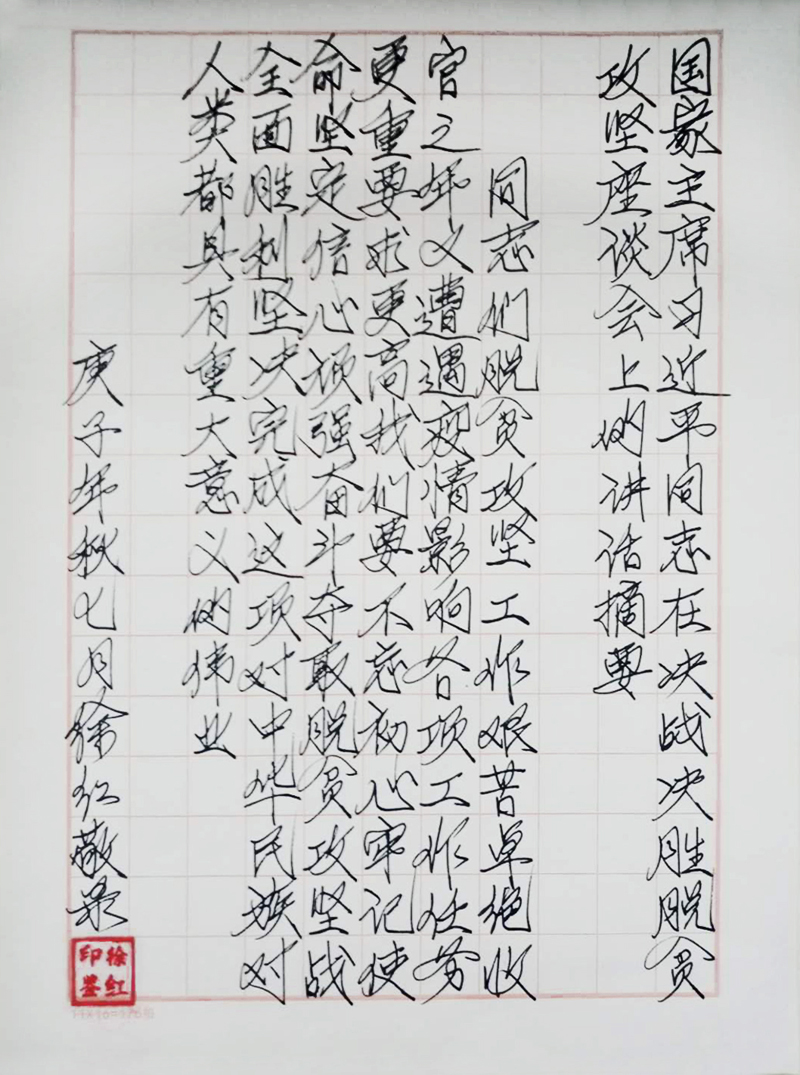 国家主席习近平同志在决战决胜脱贫
攻坚座谈会上的讲话摘要
同志们脱贫攻坚工作艰苦卓绝收
官之年又遭遇疫情影响各项工作任务
更重要求更高我们要不忘初心牢记使
命坚定信心顽强奋斗夺取脱贫攻坚战
全面胜利坚决完成这项对中华民族对
人类都具有重大意义的伟业
庚子年秋七月徐红敬录
徐红印鉴